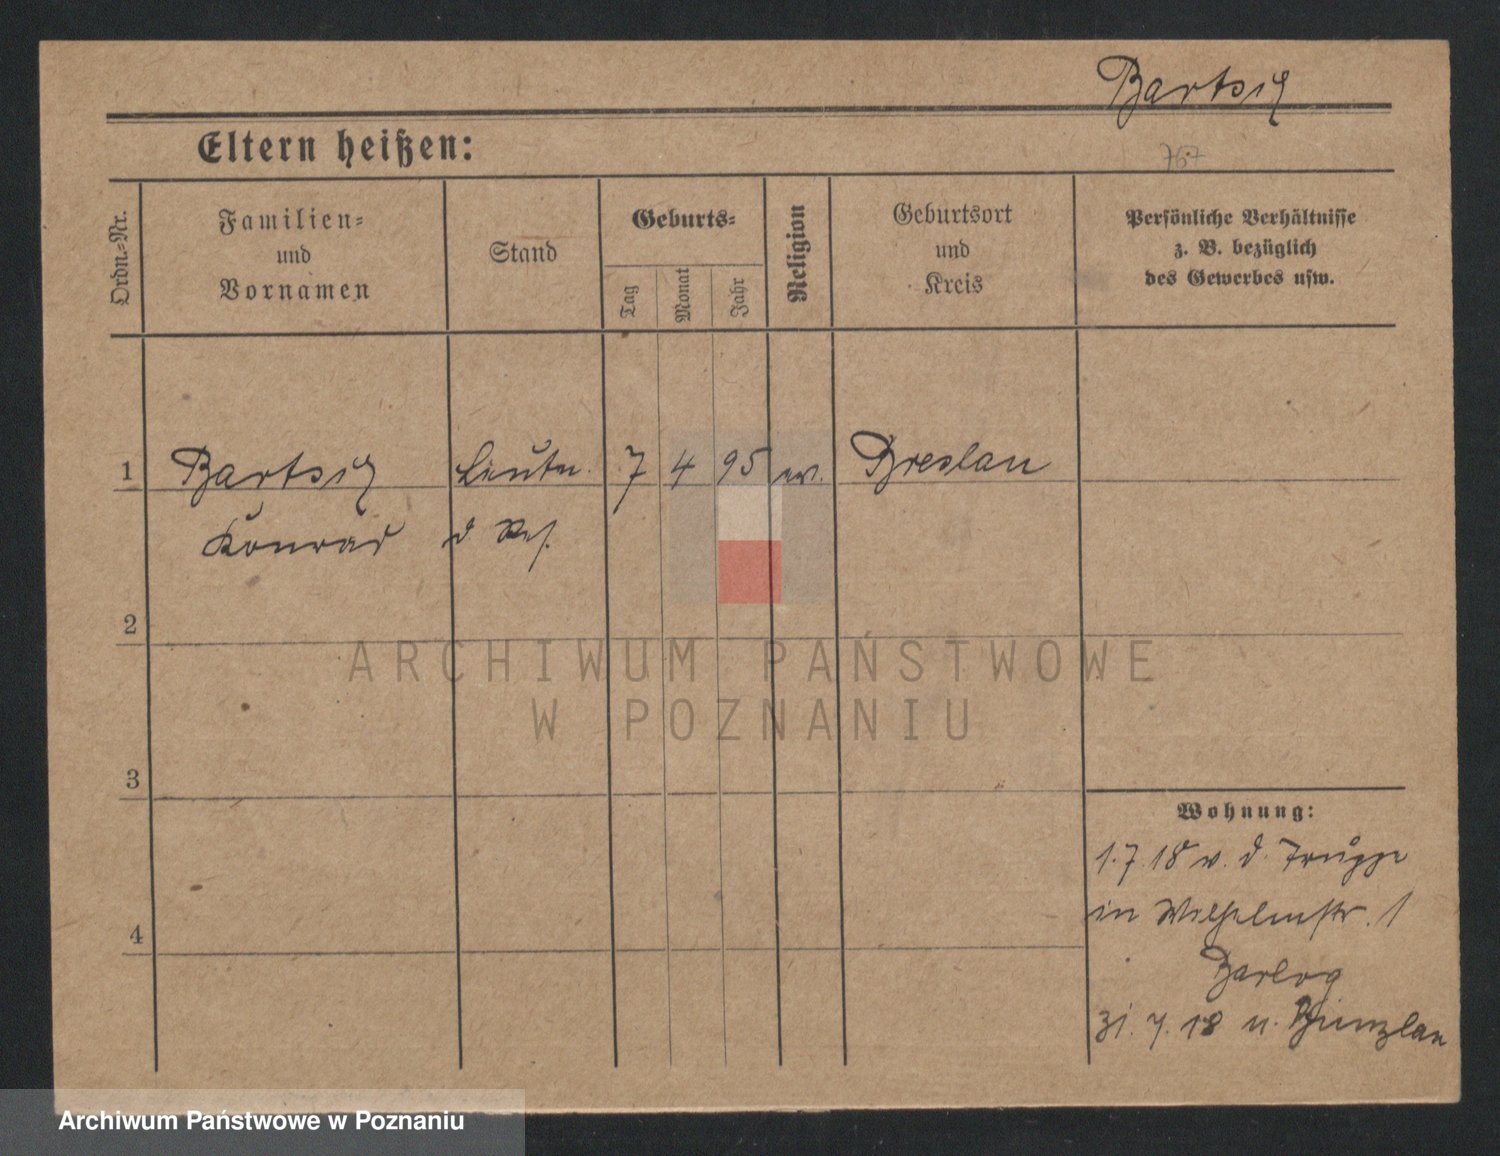 Bartsch
767
Eltern heißen:
Ordn.-Nr.
Familien-
und
Vornamen
Stand
Geburts-
Tag
Monat
Jahr
Religion
Geburtsort
und
Kreis
Persönliche Verhältnisse
z. B. bezüglich
des Gewerbes usw.
1 Bartsch Leutn. 7 4 95 ev. Breslau
Konrad d Res.
2
3
4
Wohnung:
1.7.18 v. d. Truppe
in Wilhelmstr. 1
Barlog
31.7.18 n. Bunzlau
ARCHIWUM PAŃSTWOWE
W POZNANIU
Archiwum Państwowe w Poznaniu